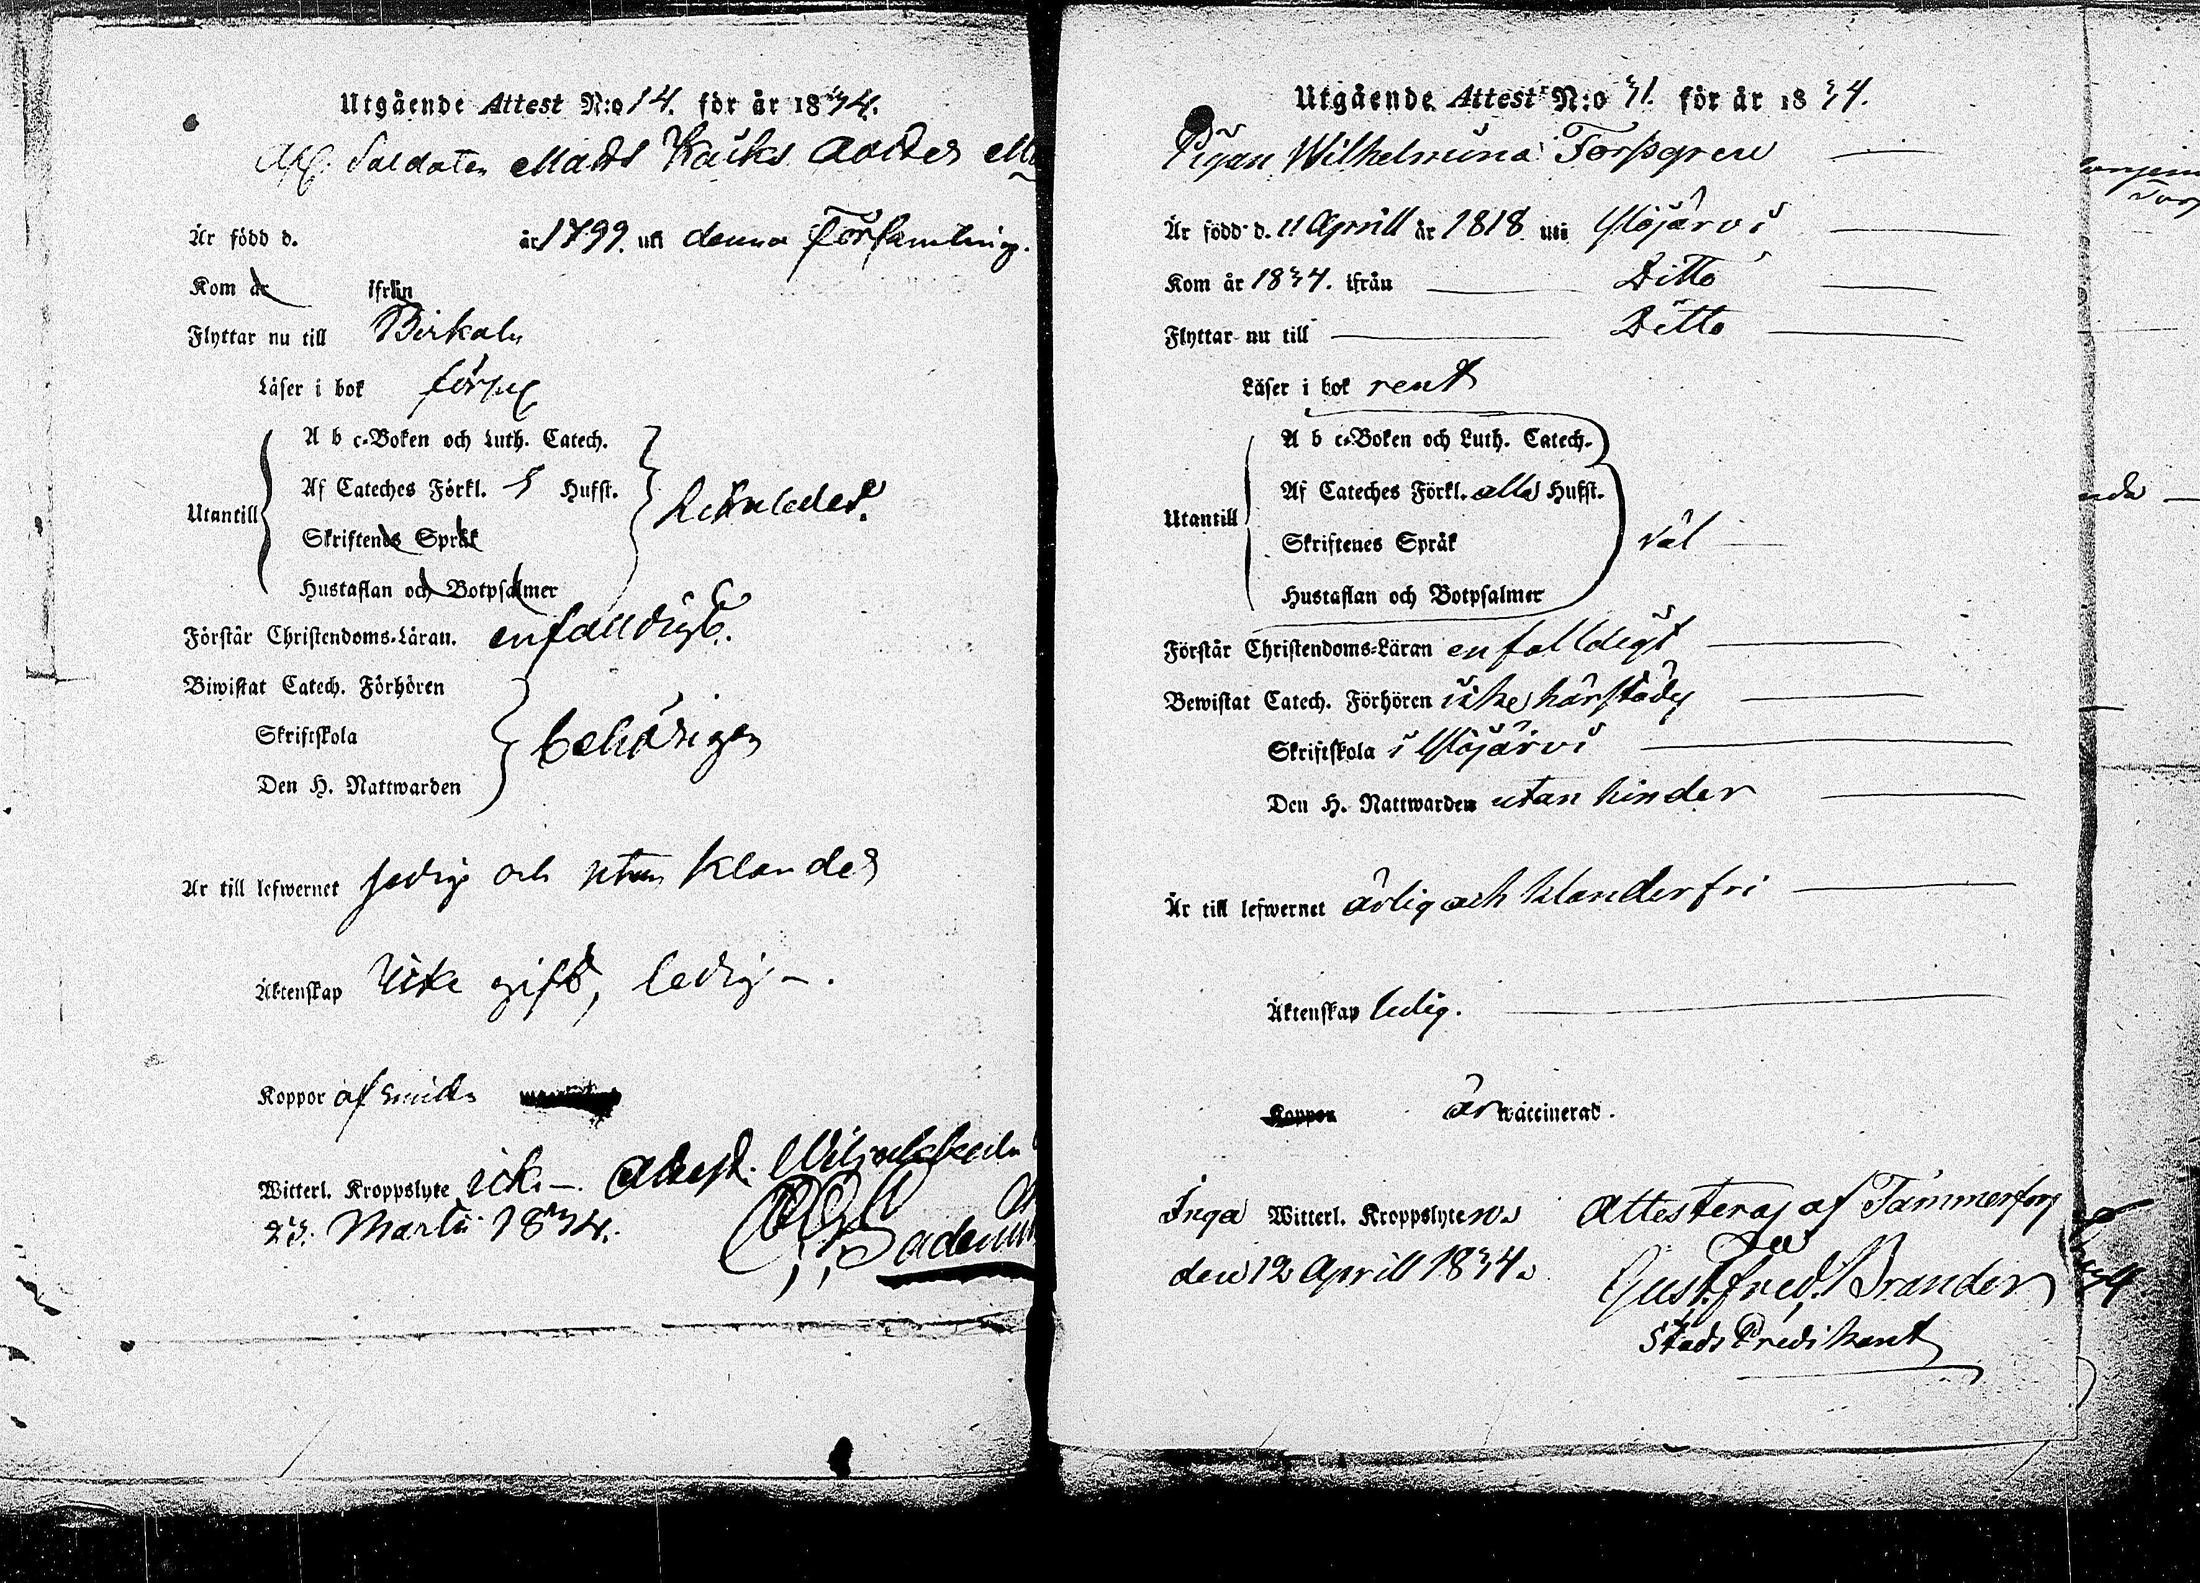 Utgående Attest N:o 14. för år 1834.
Afl. Soldaten Matts Kauks dotter
Är född d. år 1799. uti denna Församling.
Kom år ifrån
Flyttar nu till Birkala
Läser i bok
A b c-Boken och Luth. Catech.
Af Cateches Förkl. 5 Hufst.
Utantill
Skriftenes Språk
Hustaflan och Botpsalmer
Förstår Christendoms-Läran. enfaldigt.
Biwistat Catech. Förhören
Skriftskola behörigen
Den H. Nattwarden
Är till lefwernet sedig och utan klander
Äktenskap icke gift, ledig -.
Koppor
Witterl. Kroppslyte Attest.
23. Martii 1834.
Utgående Attest N:o 31. för år 1834.
Pigan Wilhelmina Forssgren
Är född d. 11 Aprill år 1818 uti Ylöjärvi
Kom år 1834. ifrån Ditto
Flyttar nu till Ditto
Läser i bok rent
A b c-Boken och Luth. Catech.
Af Cateches Förkl. alla Hufst.
Utantill
Skriftenes Språk väl
Hustaflan och Botpsalmer
Förstår Christendoms-Läran enfalldigt
Bewistat Catech. Förhören icke härstädes
Skriftskola i Ylöjärvi
Den H. Nattwarden utan hinder
Är till lefwernet ärlig och klanderfri
Äktenskap ledig.
Koppor är waccinerad.
Inga Witterl. Kroppslyten. Attesteras af Tammerfors
den 12 Aprill 1834.
Gust. Fred. Brander
Stads Predikant